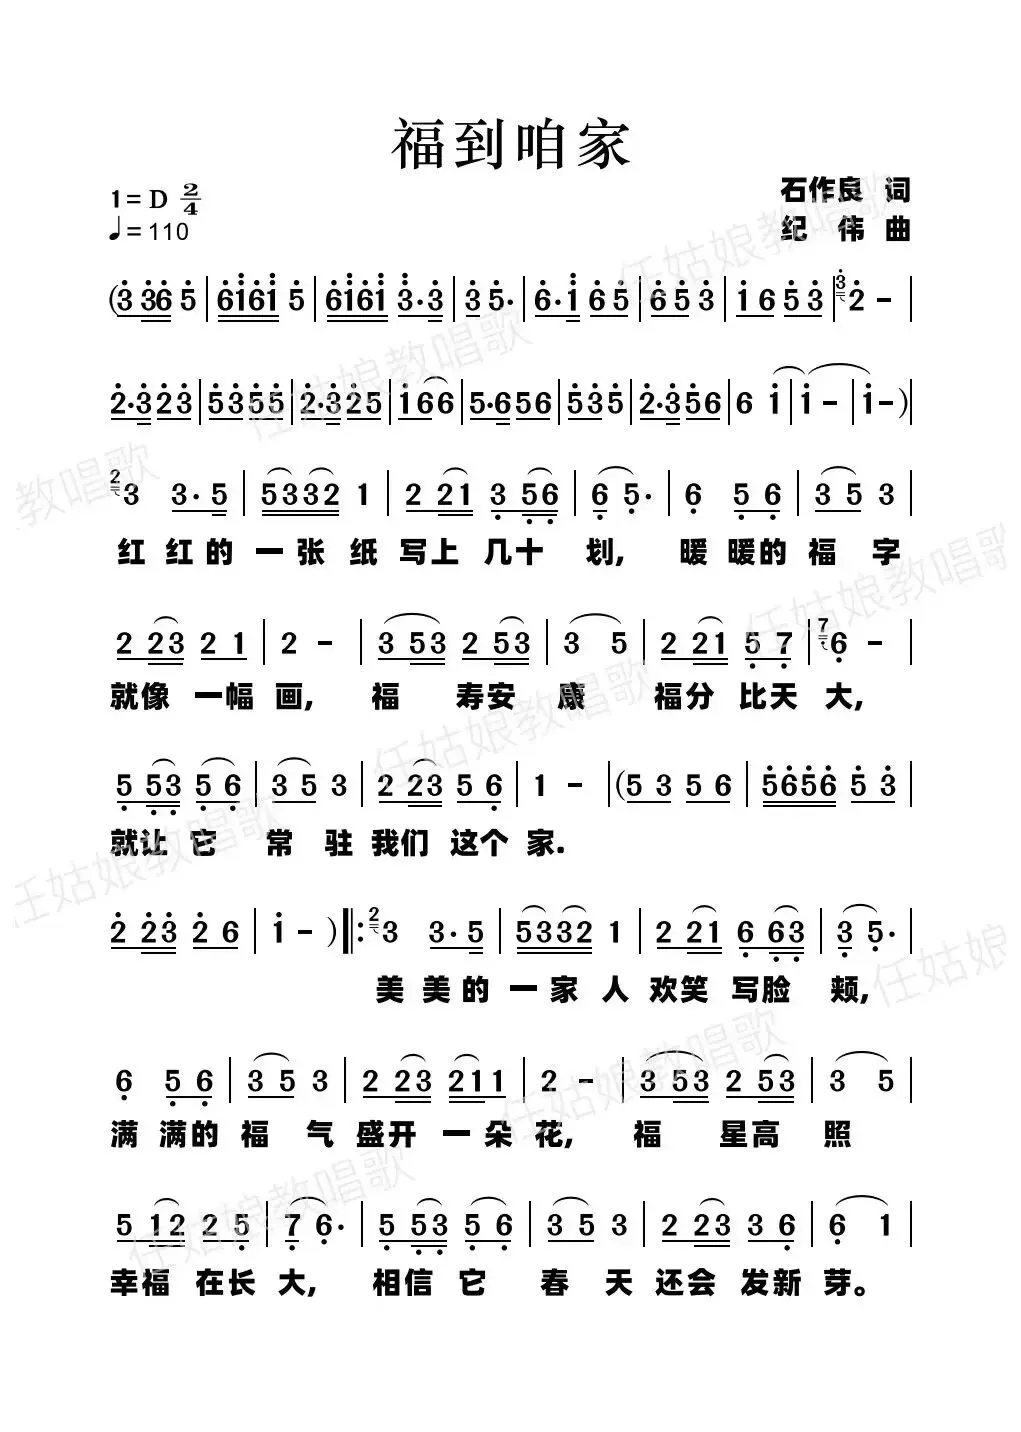 福到咱家
1=D 2/4
石作良 词
♩=110
纪 伟 曲
(3 36 5 | 6161 5 | 6161 3·3 | 3 5· | 6·1 65 | 65 3 | 16 53 | 3 2 - |
2·323 | 5355 | 2·325 | 166 | 5·656 | 535 | 2·356 | 6 1 | 1 - | 1 - ) |
2 3 3·5 | 5332 1 | 2 21 3 56 | 6 5· | 6 5 6 | 3 5 3
红 红 的 一 张 纸 写上 几十 划, 暖 暖的 福 字
2 23 2 1 | 2 - | 3 53 2 53 | 3 5 | 2 21 5 7 | 7 6 - |
就像 一幅 画, 福 寿安 康 福分 比天 大,
5 53 5 6 | 3 5 3 | 2 23 5 6 | 1 - | (5 3 5 6 | 5656 5 3 |
就让 它 常 驻 我们 这个 家.
2 23 2 6 | 1 - ) ‖: 2 3 3·5 | 5332 1 | 2 21 6 63 | 3 5· |
美 美 的 一 家 人 欢笑 写脸 颊,
6 5 6 | 3 5 3 | 2 23 211 | 2 - | 3 53 2 53 | 3 5 |
满 满的 福 气 盛开 一 朵 花, 福 星高 照
5 12 2 5 | 7 6· | 5 53 5 6 | 3 5 3 | 2 23 3 6 | 6 1 |
幸福 在长 大, 相信 它 春 天 还会 发新 芽。
任姑娘教唱歌
任姑娘教唱歌
教唱歌
任姑娘教唱歌
任姑娘教唱歌
任姑娘教唱歌
任姑娘
任姑娘教唱歌
任姑娘教唱歌